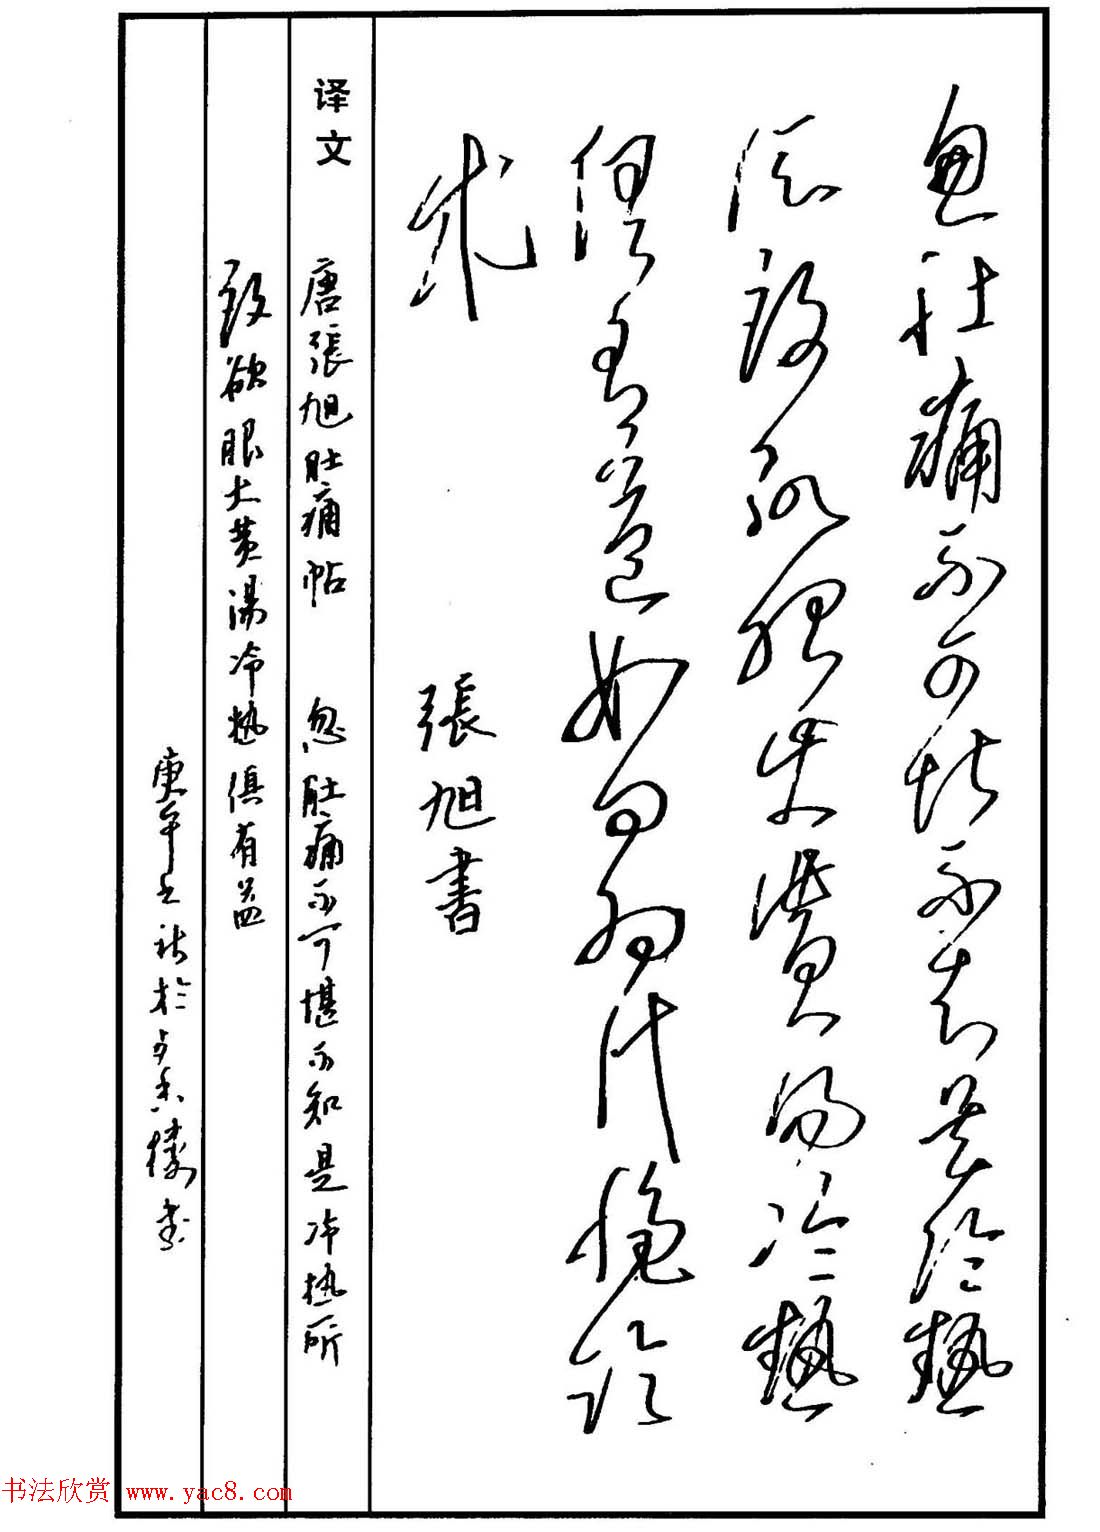 忽肚痛不可堪不知是冷熱
所致欲服大黃湯冷熱
俱有益如何為計
床 張旭書
译文 唐張旭肚痛帖 忽肚痛不可堪不知是冷热所
致欲服大黄湯冷热俱有益
庚午 於 香樓書
书法欣赏 www.yac8.com